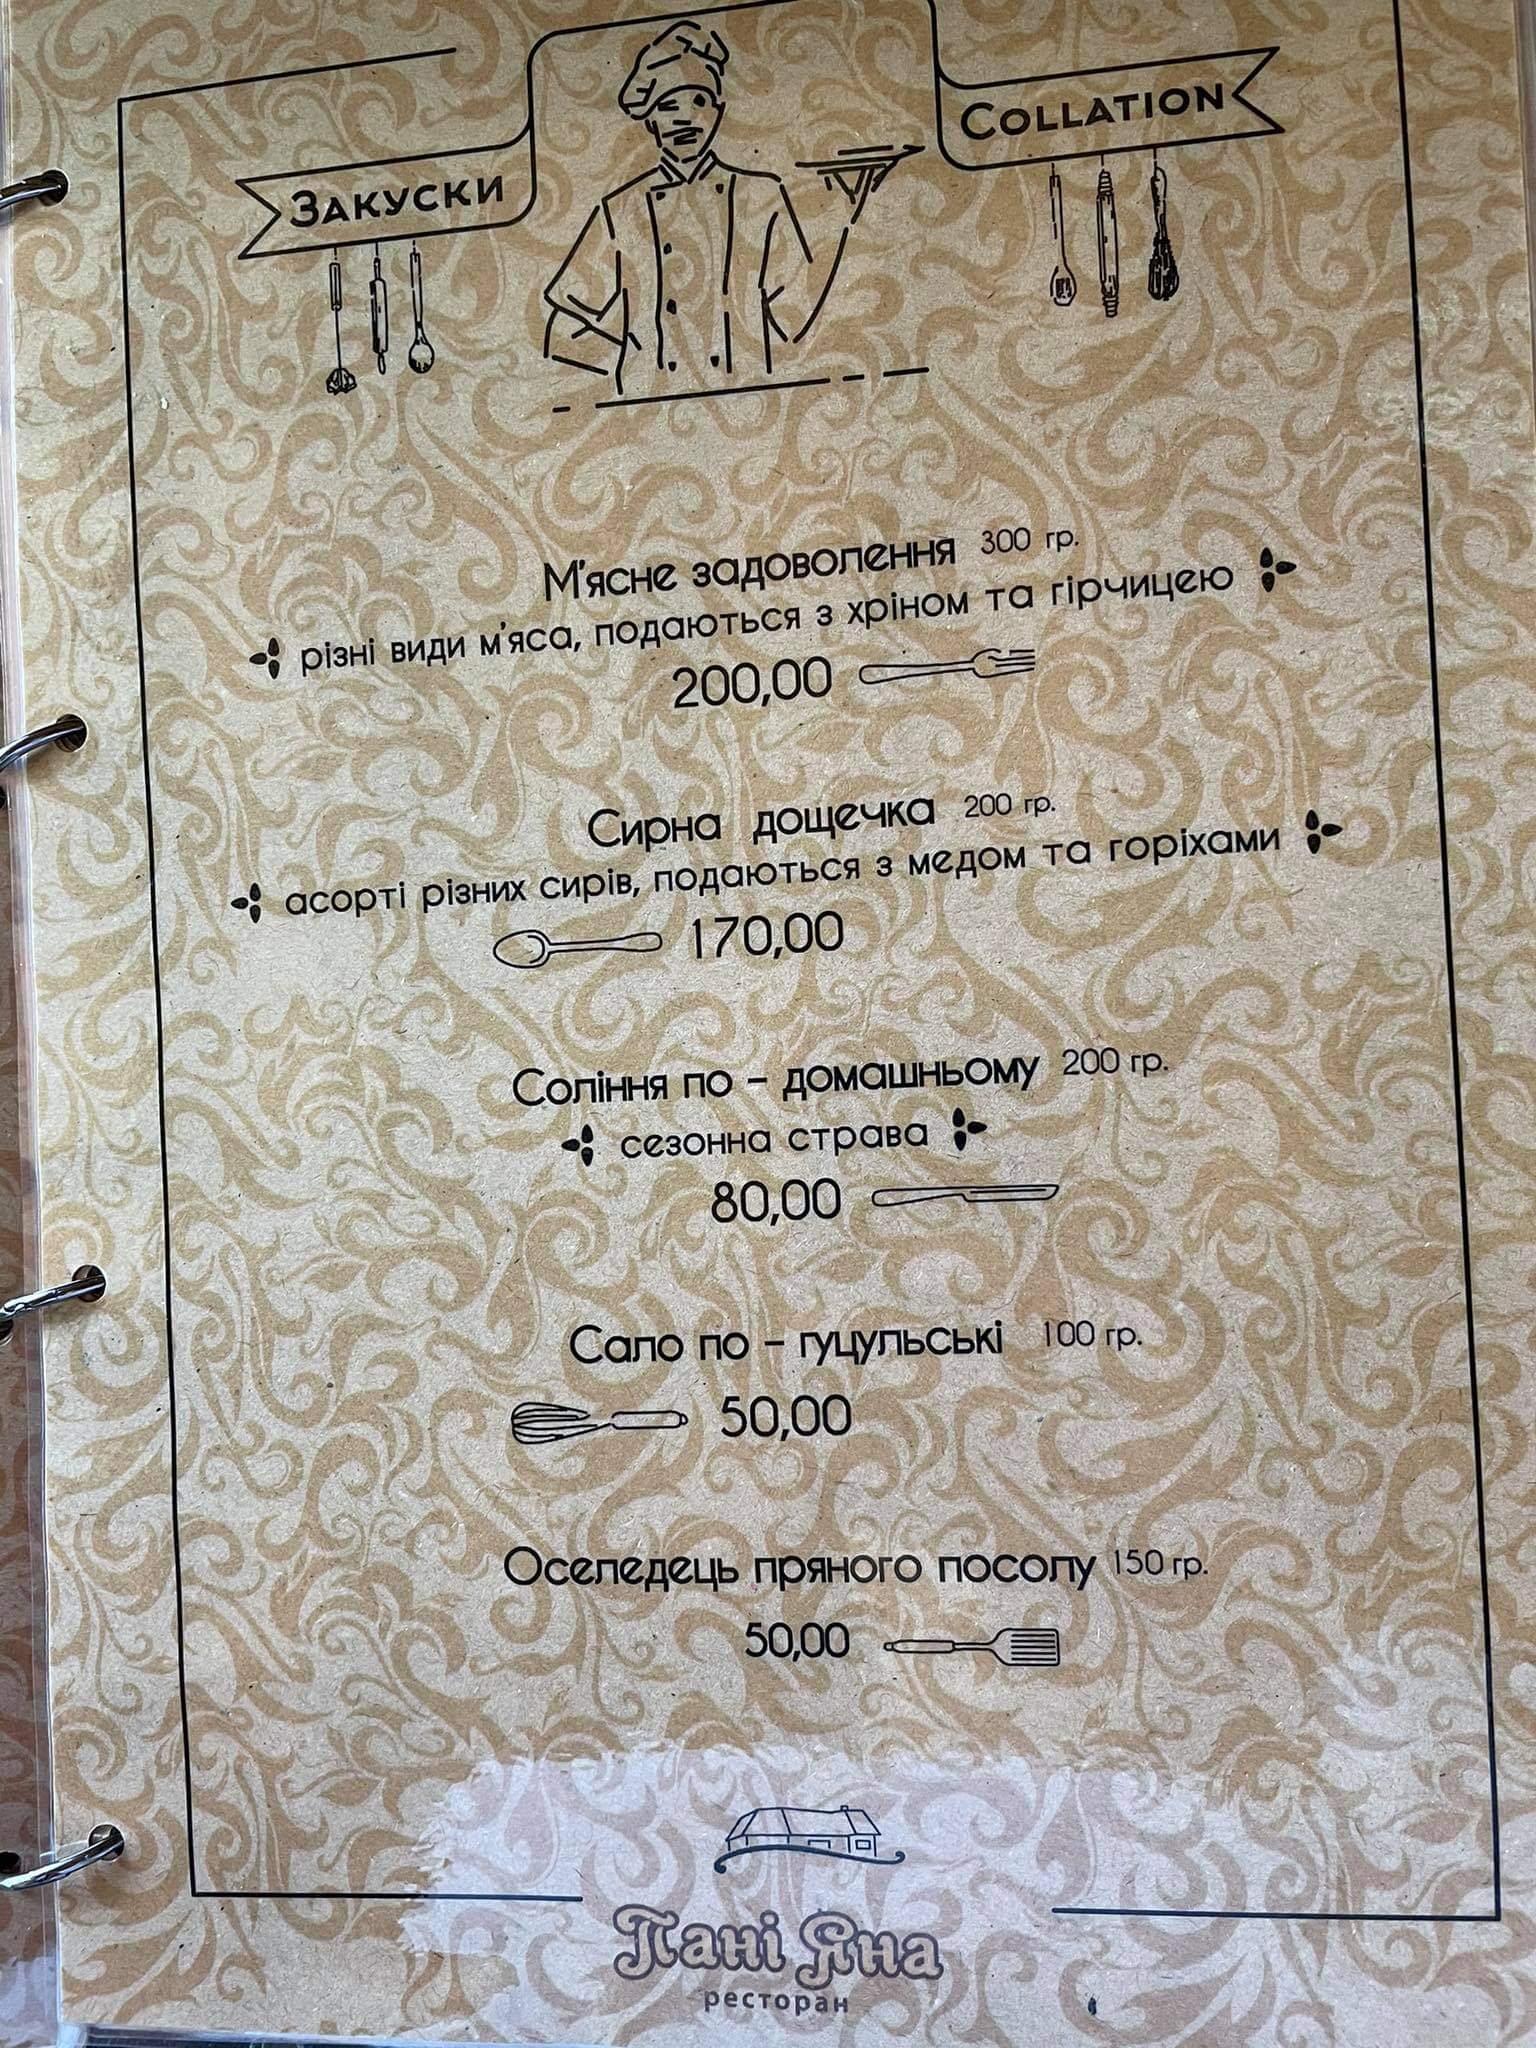 Закуски
Collation
М'ясне задоволення 300 гр.
різні види м'яса, подаються з хріном та гірчицею
200,00
Сирна дощечка 200 гр.
асорті різних сирів, подаються з медом та горіхами
170,00
Соління по - домашньому 200 гр.
сезонна страва
80,00
Сало по - гуцульські 100 гр.
50,00
Оселедець пряного посолу 150 гр.
50,00
Пані Яна
ресторан